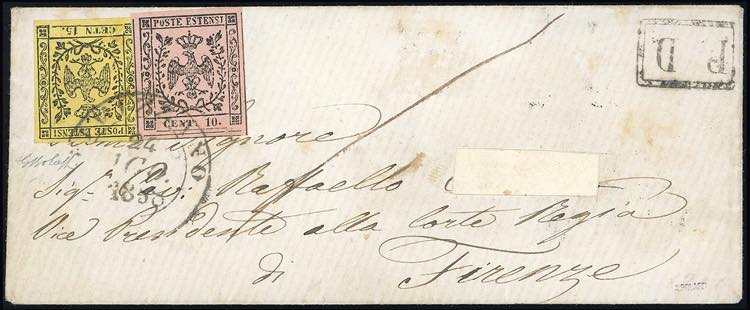 POSTE ESTENSI
CETN 15.
POSTE ESTENSI
CENT. 10.
P D
24
1858
Signore
Sig.r Cav. Raffaello
Vice Presidente alla Corte Regia
di
Firenze